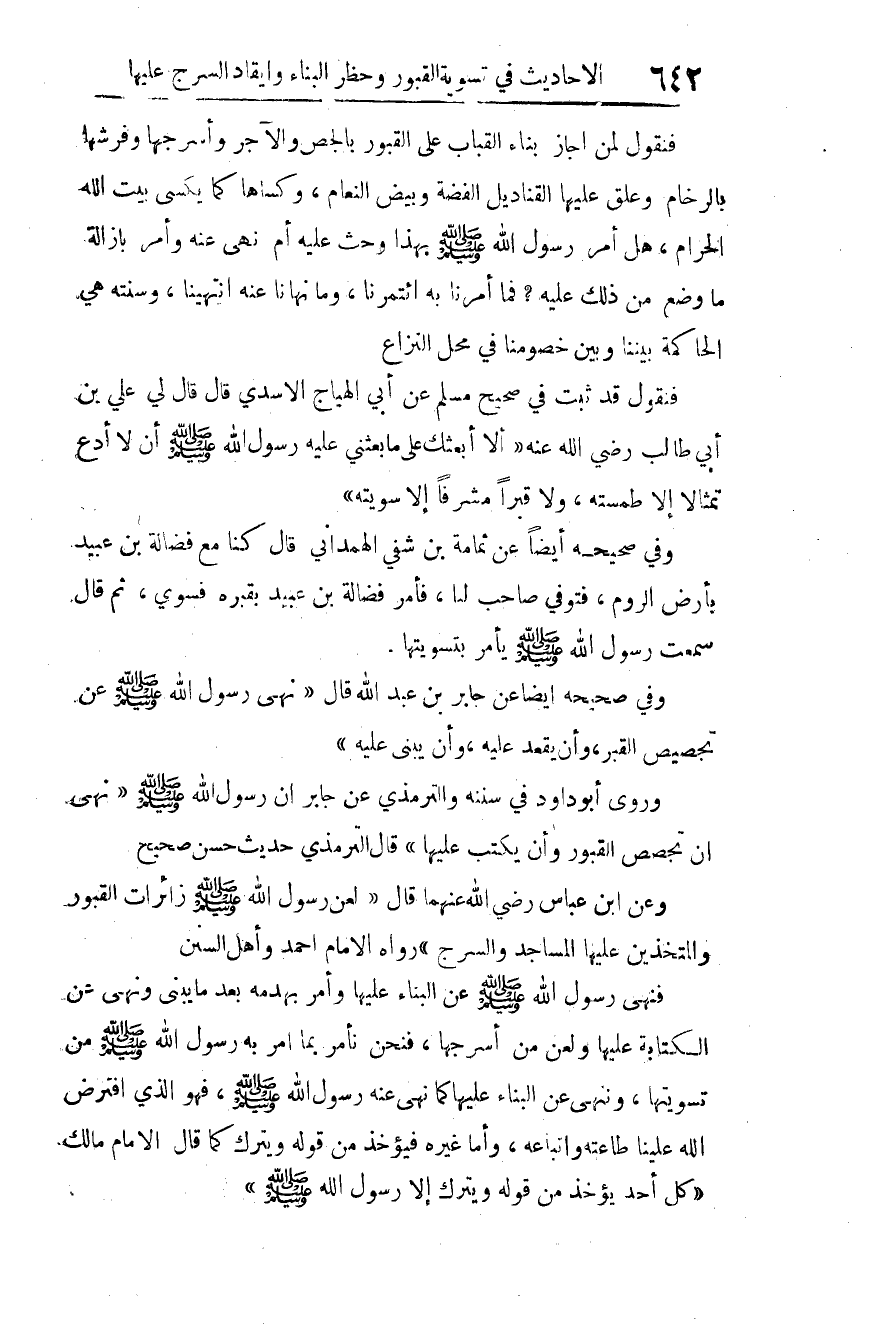 ٦٤٢ الاحاديث في تسوية القبور وحظر البناء وايقاد السرج عليها
فنقول لمن اجاز بناء القباب على القبور بالجص والآجر وأسرجها وفرشها
بالرخام وعلق عليها القناديل الفضة وبيض النعام ، وكساها كما يكسى بيت الله
الحرام ، هل أمر رسول الله ﷺ بهذا وحث عليه أم نهى عنه وأمر بازالة
ما وضع من ذلك عليه ? فما أمرنا به ائتمرنا ، وما نهانا عنه انتهينا ، وسنته هي
الحاكمة بيننا وبين خصومنا في محل النزاع
فنقول قد ثبت في صحيح مسلم عن أبي الهياج الاسدي قال قال لي علي بن
أبي طالب رضي الله عنه « ألا أبعثك على ما بعثني عليه رسول الله ﷺ أن لا أدع
تمثالا إلا طمسته ، ولا قبراً مشرفاً إلا سويته»
وفي صحيحه أيضاً عن ثمامة بن شفي الهمداني قال كنا مع فضالة بن عبيد
بأرض الروم ، فتوفي صاحب لنا ، فأمر فضالة بن عبيد بقبره فسوي ، ثم قال
سمعت رسول الله ﷺ يأمر بتسويتها .
وفي صحيحه ايضا عن جابر بن عبد الله قال « نهى رسول الله ﷺ عن
تجصيص القبر ،وأن يقعد عليه ،وأن يبنى عليه »
وروى أبو داود في سننه والترمذي عن جابر ان رسول الله ﷺ « نهى
ان تجصص القبور وأن يكتب عليها » قال الترمذي حديث حسن صحيح
وعن ابن عباس رضي الله عنهما قال « لعن رسول الله ﷺ زائرات القبور
والمتخذين عليها المساجد والسرج »رواه الامام احمد وأهل السنن
فنهى رسول الله ﷺ عن البناء عليها وأمر بهدمه بعد ما يبنى ونهى عن
الكتابة عليها ولعن من أسرجها ، فنحن نأمر بما امر به رسول الله ﷺ من
تسويتها ، وننهى عن البناء عليها كما نهى عنه رسول الله ﷺ ، فهو الذي افترض
الله علينا طاعته واتباعه ، وأما غيره فيؤخذ من قوله ويترك كما قال الامام مالك
«كل أحد يؤخذ من قوله ويترك إلا رسول الله ﷺ »